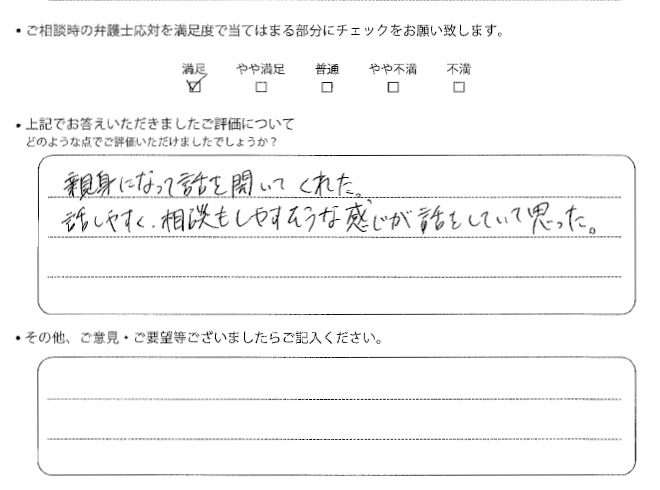 • ご相談時の弁護士応対を満足度で当てはまる部分にチェックをお願い致します。
満足 やや満足 普通 やや不満 不満
☑ □ □ □ □
• 上記でお答えいただきましたご評価について
どのような点でご評価いただけましたでしょうか？
親身になって話を聞いてくれた。
話しやすく、相談もしやすそうな感じが話をしていて思った。
• その他、ご意見・ご要望等ございましたらご記入ください。